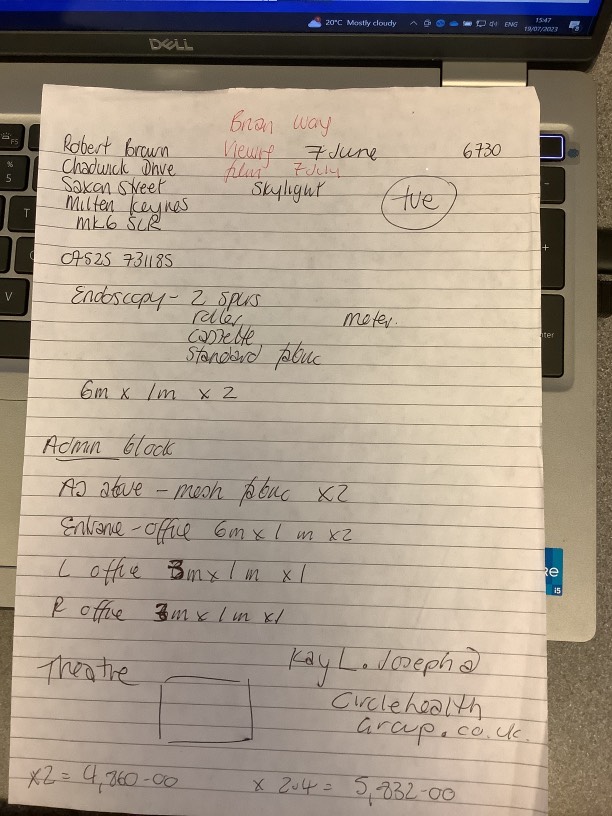 20°C Mostly cloudy
ENG
15:47
19/07/2023
DELL
Brian Way
Robert Brown Viewing 7 June 6730
Chadwick Drive 7 July
Saxon Street Skylight tve
Milten Keynes
MK6 5LR
07525 731185
Endoscopy - 2 spurs
roller meter.
cassette
standard fabric
6m x 1m x 2
Admin block
As above - mesh fabric x2
Entrance - office 6m x 1m x2
L office 3m x 1m x1
R office 3m x 1m x1
Theatre Kay L. Joseph@
Circlehealth
Group.co.uk.
x2 = 4,860-00 x 2.4 = 5,832-00